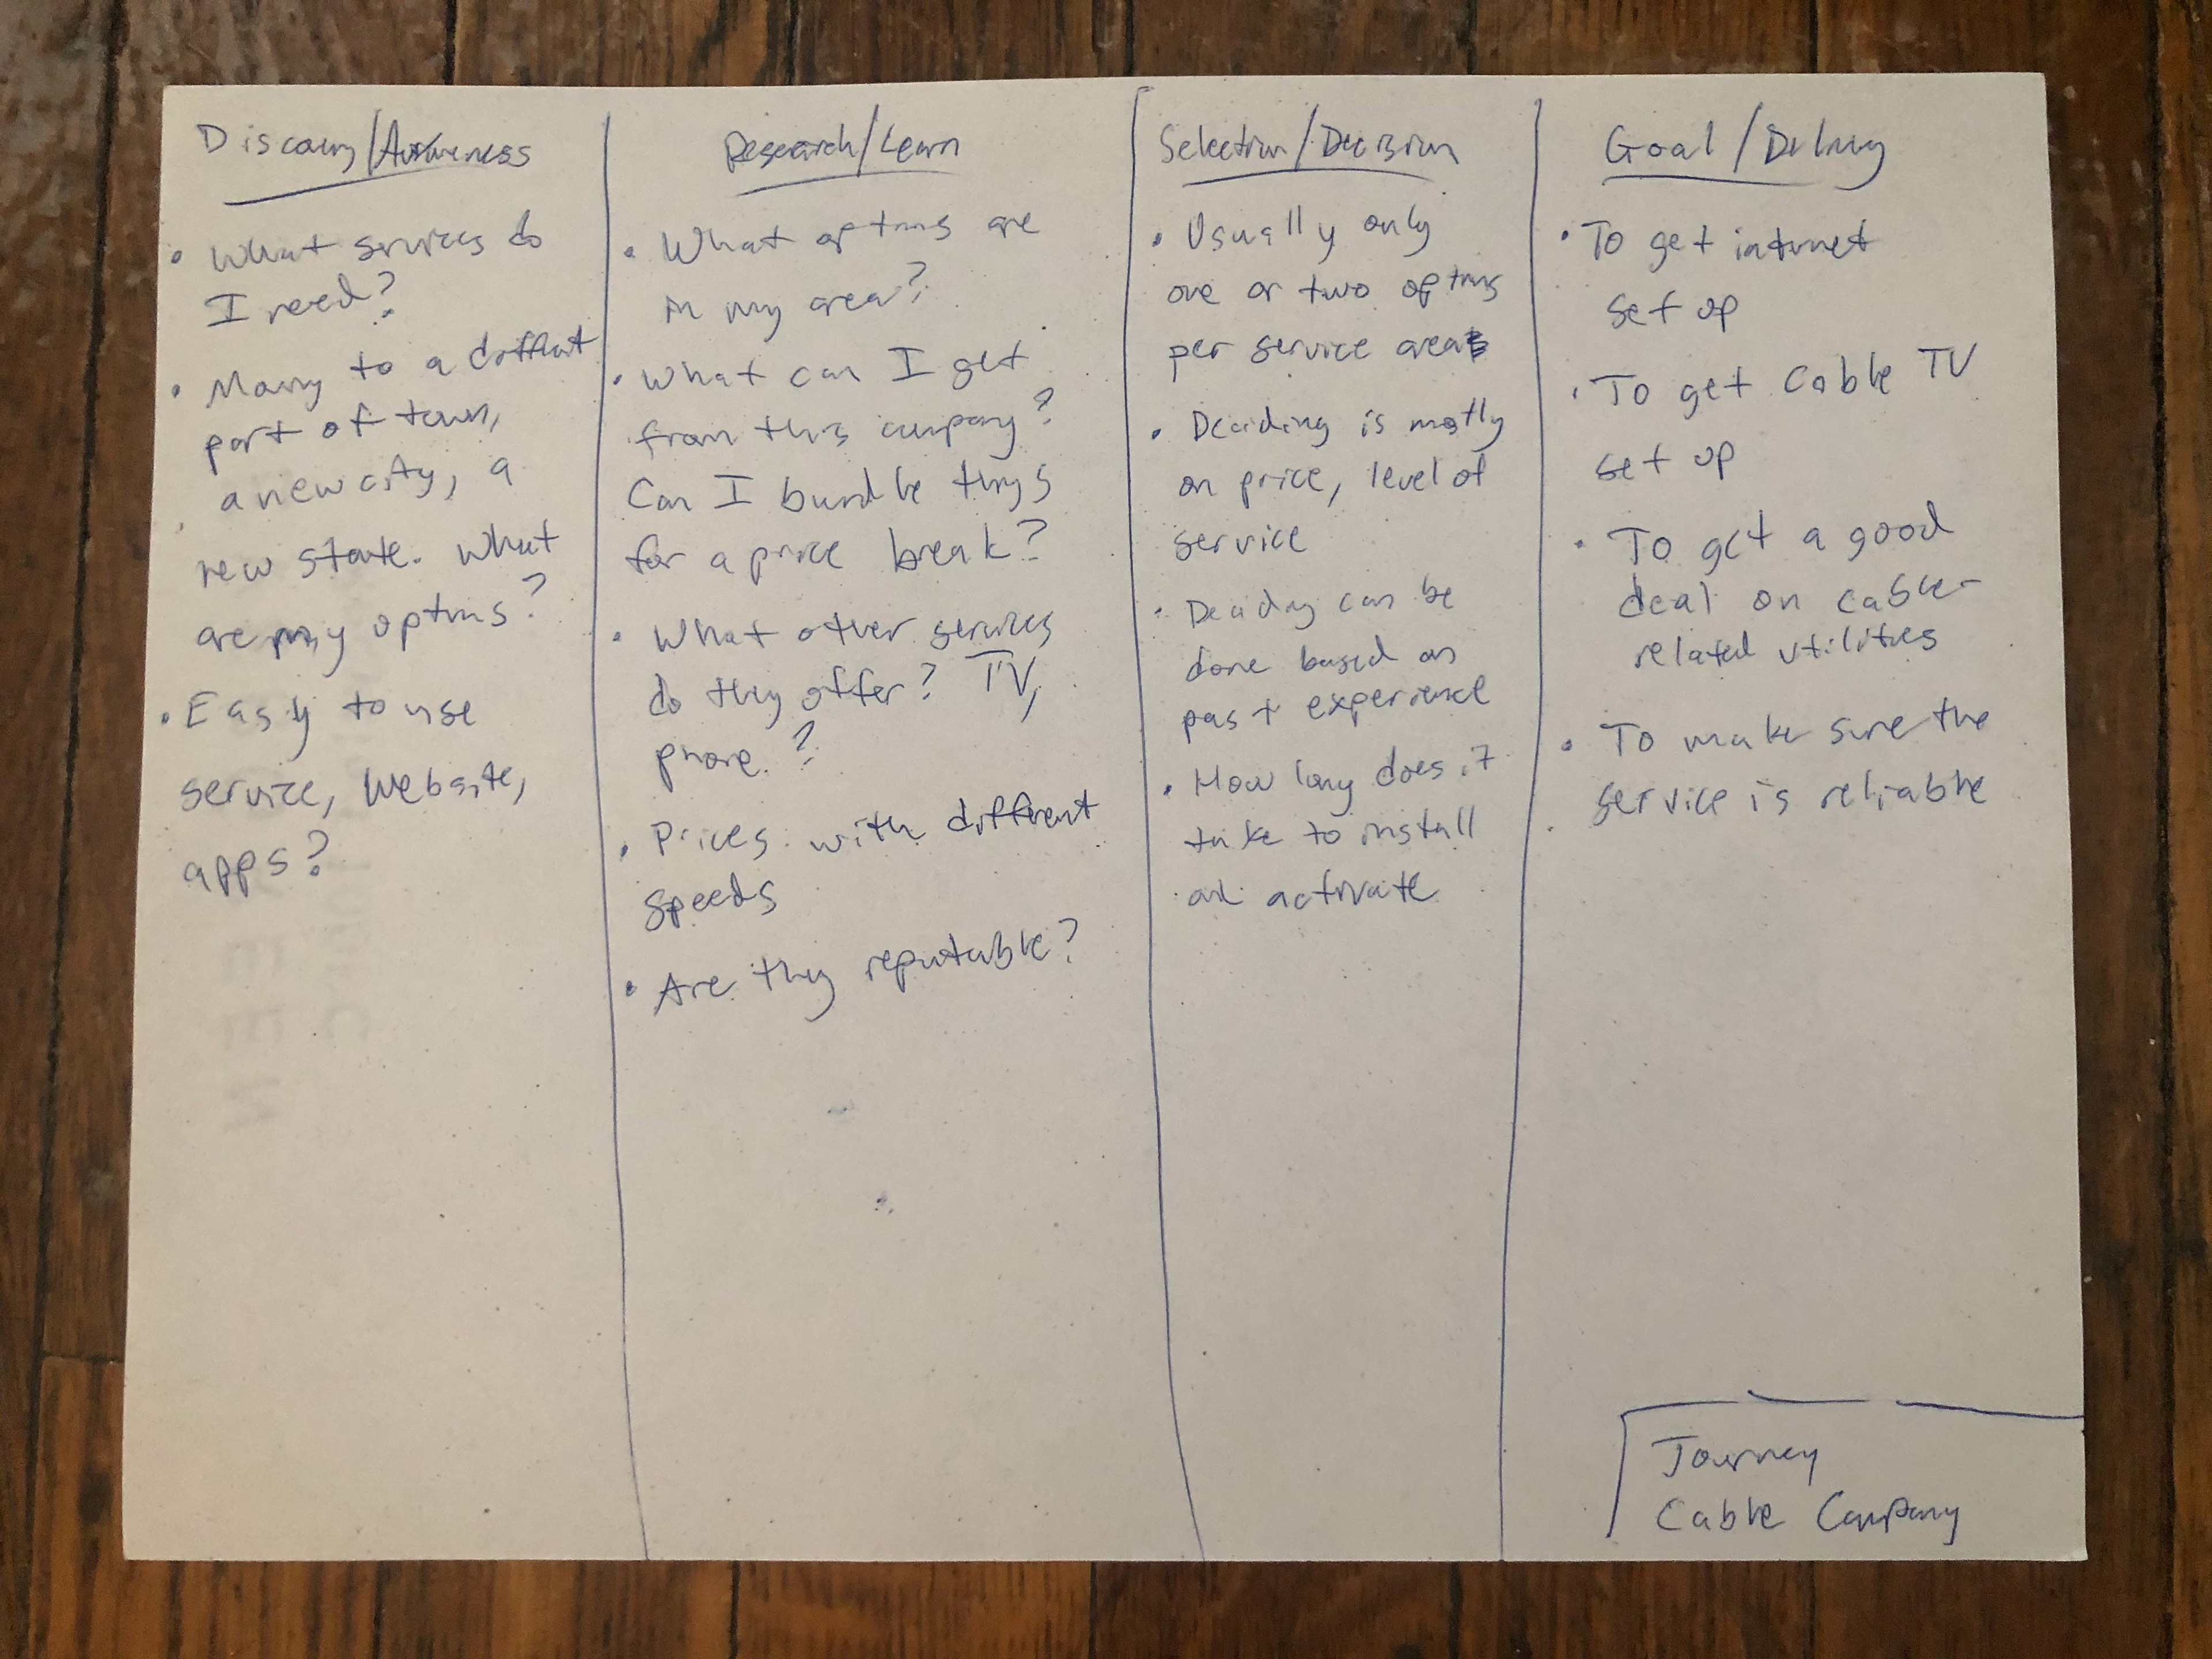 Discovery/Awareness
What services do
I need?
Moving to a different
part of town,
a new city, a
new state. What
are my options?
Easy to use
service, website,
apps?
Research/Learn
What options are
in my area?
What can I get
from this company?
Can I bundle things
for a price break?
What other services
do they offer? TV,
phone.?
Prices with different
speeds
Are they reputable?
Selection/Decision
Usually only
one or two options
per service area
Deciding is mostly
on price, level of
service
Deciding can be
done based on
past experience
How long does it
take to install
and activate
Goal/Delivery
To get internet
set up
To get Cable TV
set up
To get a good
deal on cable-
related utilities
To make sure the
service is reliable
Journey
Cable Company